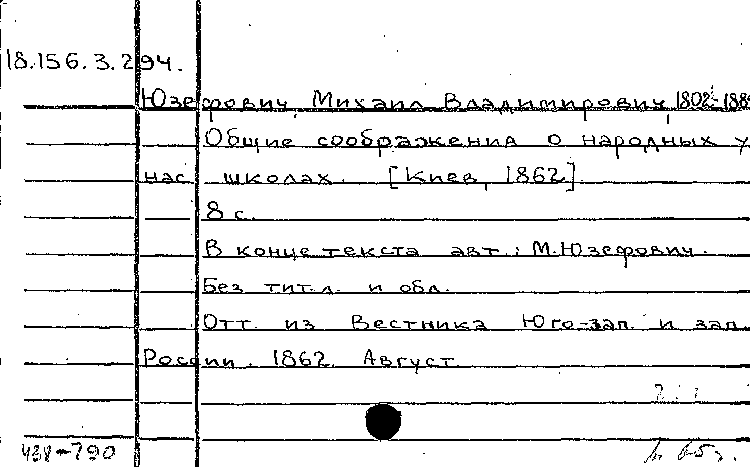 18.156.3.294.
Юзефович, Михаил Владимирович, 1802-188
Общие соображения о народных у
нас школах. [Киев, 1862].
8 с.
В конце текста авт.: М.Юзефович.
Без тит.л. и обл.
Отт. из Вестника Юго-зап. и зап.
России. 1862. Август.
438-790